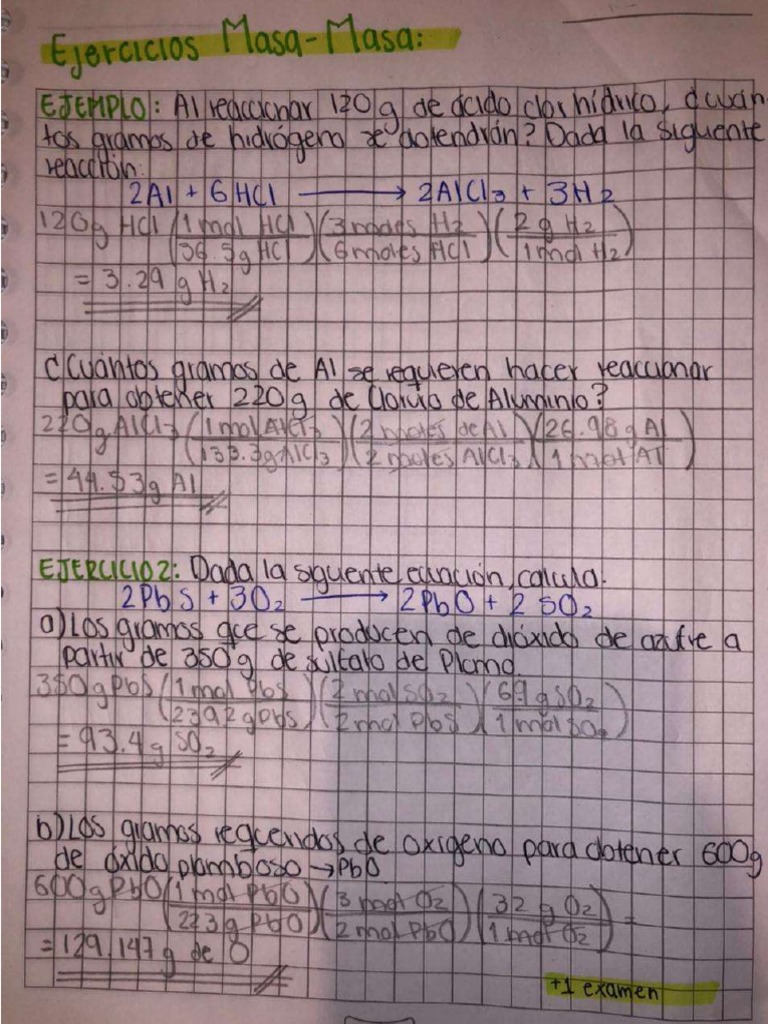 Ejercicios Masa-Masa:
EJEMPLO: Al reaccionar 120 g de ácido clorhídrico, ¿cuán-
tos gramos de hidrógeno se obtendrán? Dada la siguiente
reacción:
2Al + 6HCl → 2AlCl₃ + 3H₂
120g HCl (1 mol HCl / 36.5g HCl)(3 moles H₂ / 6 moles HCl)(2 g H₂ / 1 mol H₂)
= 3.29 g H₂
¿Cuántos gramos de Al se requieren hacer reaccionar
para obtener 220g de Cloruro de Aluminio?
220g AlCl₃ (1 mol AlCl₃ / 133.3g AlCl₃)(2 moles de Al / 2 moles AlCl₃)(26.98 g Al / 1 mol Al)
= 44.53g Al
EJERCICIO 2: Dada la siguiente ecuación, calcula.
2PbS + 3O₂ → 2PbO + 2 SO₂
a) Los gramos que se producen de dióxido de azufre a
partir de 350g de sulfato de Plomo.
350g PbS (1 mol PbS / 239.2 g PbS)(2 mol SO₂ / 2 mol PbS)(g SO₂ / 1 mol SO₂)
= 93.4 g SO₂
b) Los gramos requeridos de oxígeno para obtener 600g
de óxido plomboso → PbO
600g PbO (1 mol PbO / 223g PbO)(3 mol O₂ / 2 mol PbO)(32 g O₂ / 1 mol O₂) =
= 129.147g de O
+1 examen